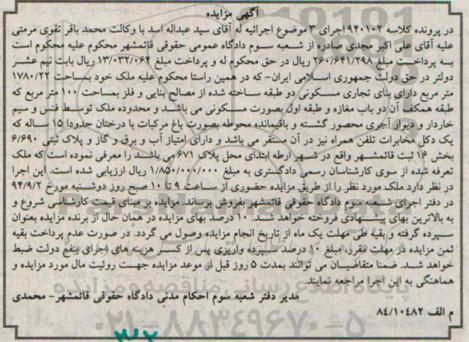 آگهی مزایده
در پرونده کلاسه ۹۴۰۱۰۲ اجرای ۳ موضوع اجرائیه له آقای سید عبداله اسد با وکالت محمد باقر تقوی مرمتی
علیه آقای علی اکبر مجدی صادره از شعبه سوم دادگاه عمومی حقوقی قائمشهر محکوم علیه محکوم است
به پرداخت مبلغ ۲۶۰/۶۴۱/۲۹۸ ریال در حق محکوم له و پرداخت مبلغ ۱۳/۰۳۲/۰۶۴ ریال بابت نیم عشر
دولتی در حق دولت جمهوری اسلامی ایران- که در همین راستا محکوم علیه ملک خود بمساحت ۱۷۸۰/۲۲
متر مربع دارای بنای تجاری مسکونی دو طبقه ساخته شده از مصالح بنایی و فلز بمساحت ۱۰۰ متر مربع که
طبقه همکف آن دو باب مغازه و طبقه اول بصورت مسکونی می باشد و محدوده ملک توسط فنس و سیم
خاردار و دیوار آجری محصور گشته و باقیمانده محوطه بصورت باغ مرکبات با درختان حدودا ۱۵ ساله که
یک دکل مخابرات تلفن همراه نیز در آن مستقر می باشد و دارای امتیاز آب و برق و گاز و پلاک ثبتی ۶/۶۹۰
بخش ۱۶ ثبت قائمشهر واقع در شهر ارطه ابتدای محل پلاک ۶۷۱ می باشد را معرفی نموده است که ملک
تعرفه شده از سوی کارشناسان رسمی دادگستری به مبلغ ۱/۸۵۰/۰۰۰/۰۰۰ ریال ارزیابی شده است. این اجرا
در نظر دارد ملک مورد نظر را از طریق مزایده حضوری از ساعت ۹ تا ۱۰ صبح روز دوشنبه مورخ ۹۴/۹/۲
در دفتر اجرای شعبه سوم دادگاه حقوقی قائمشهر بفروش برساند. مزایده بر مبنای قیمت کارشناسی شروع و
به بالاترین بهای پیشنهادی فروخته خواهد شد. ۱۰ درصد بهای مزایده در همان حال از برنده مزایده بعنوان
سپرده گرفته و بقیه طی مهلت یک ماه از تاریخ انجام مزایده وصول می گردد. در صورت عدم پرداخت بقیه
ثمن مزایده در مهلت مقرر، مبلغ ۱۰ درصد سپرده واریزی پس از کسر هزینه های اجرای بنفع دولت ضبط
خواهد شد. ضمنا متقاضیان می توانند بمدت ۵ روز قبل از موعد مزایده جهت روئیت مال مورد مزایده و
هماهنگی به این اجرا مراجعه نمایند.
مدیر دفتر شعبه سوم احکام مدنی دادگاه حقوقی قائمشهر- محمدی
م الف ۸۴/۱۰۴۸۲
پایگاه اطلاع رسانی مناقصه و مزایده
۰۲۱-۸۸۳۴۹۶۷۰-۵